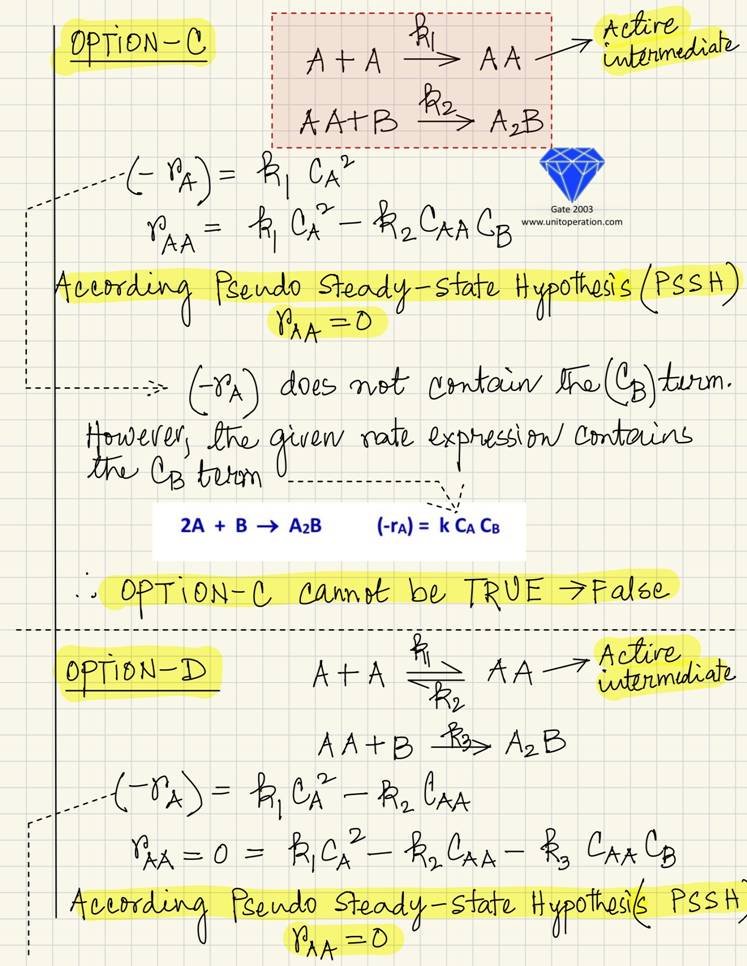 OPTION-C
A + A →k1 AA → Active intermediate
AA + B →k2 A2B
(-rA) = k1 CA²
rAA = k1 CA² - k2 CAA CB
Gate 2003
www.unitoperation.com
According Pseudo Steady-State Hypothesis (PSSH)
rAA = 0
(-rA) does not contain the (CB) term.
However, the given rate expression contains
the CB term
2A + B → A2B (-rA) = k CA CB
∴ OPTION-C cannot be TRUE → False
OPTION-D
A + A ⇌ k1 k2 AA → Active intermediate
AA + B →k3 A2B
(-rA) = k1 CA² - k2 CAA
rAA = 0 = k1 CA² - k2 CAA - k3 CAA CB
According Pseudo Steady-State Hypothesis PSSH)
rAA = 0